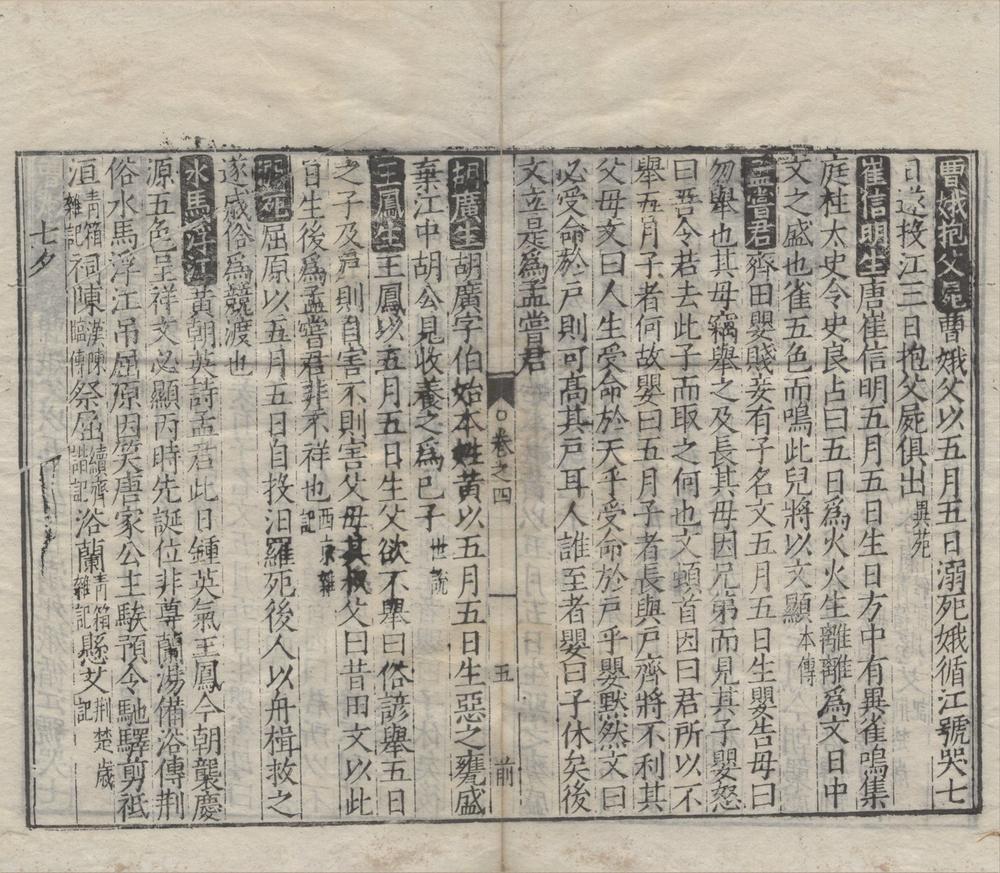 曹娥抱父屍曹娥父以五月五日溺死娥循江號哭七
日遂投江三日抱父屍俱出異苑
崔信明生唐崔信明五月五日生日方中有異雀鳴集
庭柱太史令史良占曰五日為火火生離離為文日中
文之盛也雀五色而鳴此兒將以文顯本傳
孟嘗君齊田嬰賤妾有子名文五月五日生嬰告母曰
勿舉也其母竊舉之及長其母因兄弟而見其子嬰怒
曰吾令若去此子而取之何也文頓首因曰君所以不
舉五月子者何故嬰曰五月子者長與戶齊將不利其
父母文曰人生受命於天乎受命於戶乎嬰默然文曰
必受命於戶則可高其戶耳人誰至者嬰曰子休矣後
文立是為孟嘗君
卷之四 五 前
胡廣生胡廣字伯始本姓黃以五月五日生惡之甕盛
棄江中胡公見收養之為已子世說
王鳳生王鳳以五月五日生父欲不舉曰俗諺舉五日
之子及戶則自害不則害父母其叔父曰昔田文以此
日生後為孟嘗君非不祥也西京雜記
死屈原以五月五日自投汨羅死後人以舟楫救之
遂成俗為競渡也
水馬浮江黃朝英詩孟君此日鍾英氣王鳳今朝襲慶
源五色呈祥文必顯丙時先誕位非尊蘭湯備浴傳荆
俗水馬浮江吊屈原因笑唐家公主騃預令馳驛剪祇
洹青箱雜記祠陳漢陳臨傳祭屈續齊諧記浴蘭青箱雜記懸艾荆楚歲記
七夕